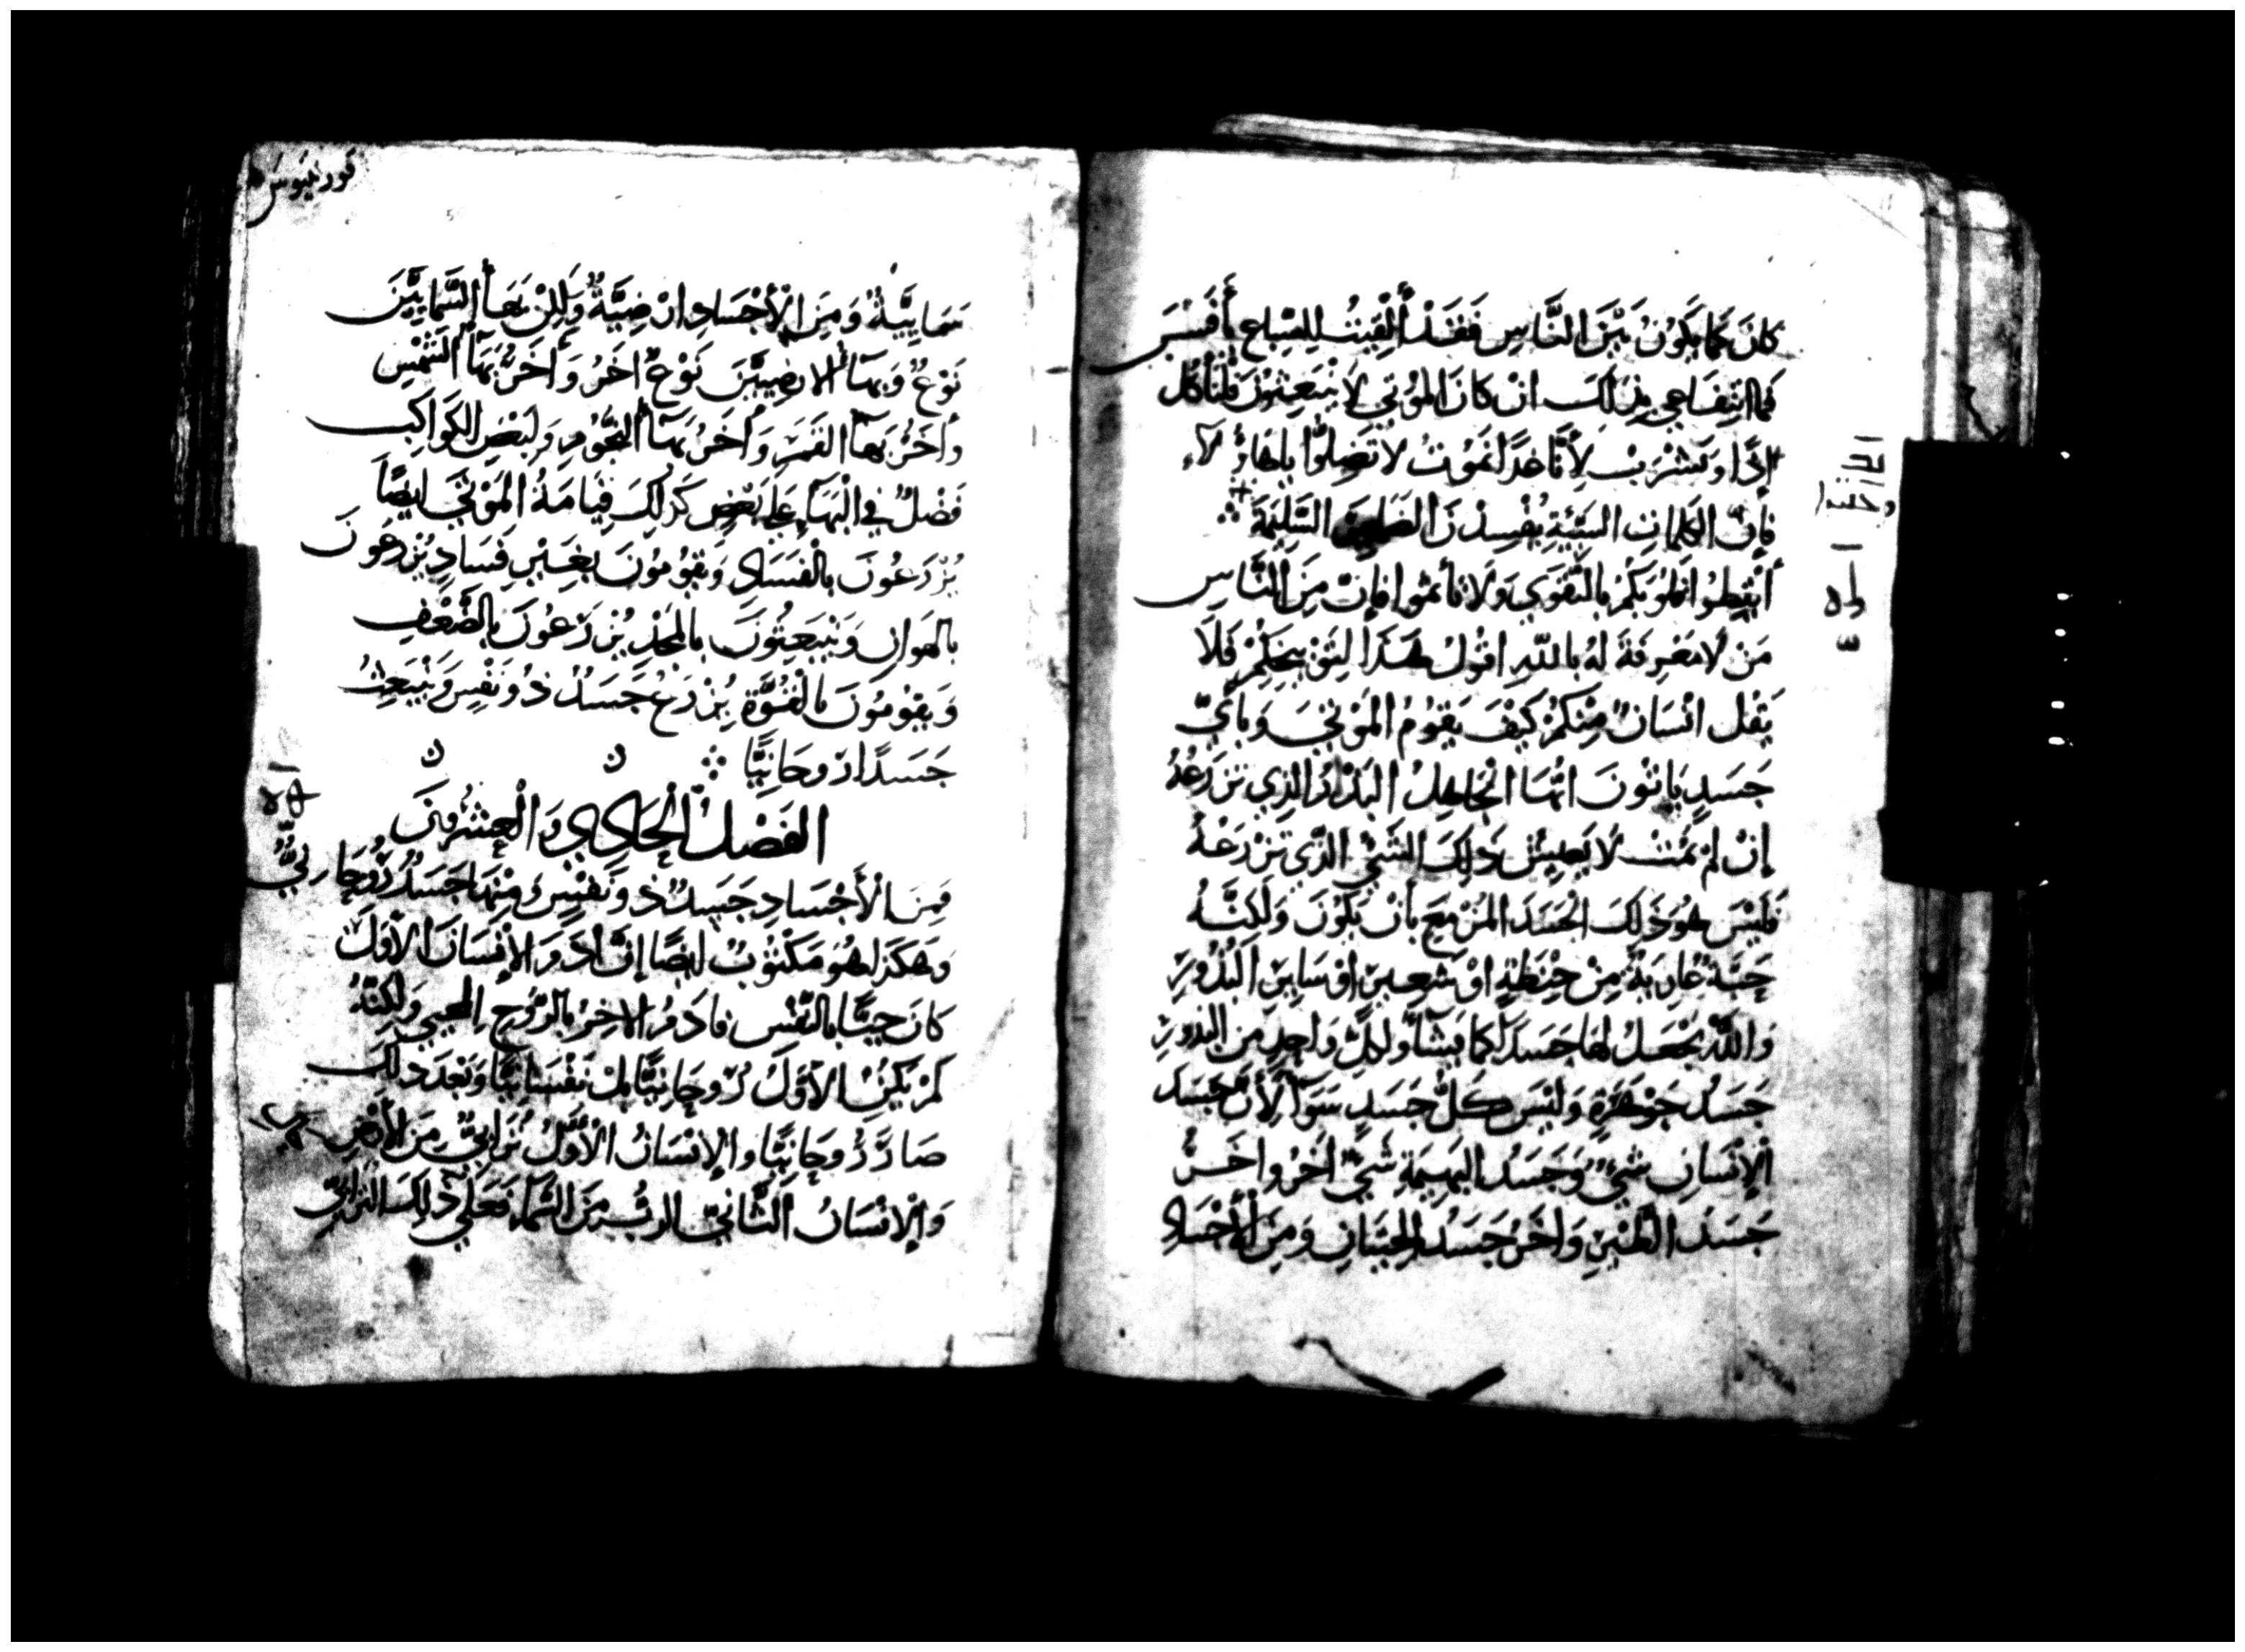 كَانَ كَمَا يَكُونُ بَيْنَ النَّاسِ فَقَدْ أُلْقِيتُ لِلسِّبَاعِ بِأَفَسْسَ
فَمَا انْتِفَاعِي بِذَلِكَ انْ كَانَ المَوْتَي لَا يَنْبَعِثُونَ فَلْنَأكُل
إذًا وَنَشْرَبْ لِأَنَّا غَدًا نَمُوتُ لَا تَضِلُّوا يا هَاؤُلآءِ
فَإِنَّ الكَلِمَاتِ السَّيِّئَةِ يُفْسِدْنَ الضَمَايِرَ السَّلِيمَةَ
أَيْقِظُوا قُلُوبَكُمْ بِالتَّقْوَي وَلَا تَأثَمُوا فَإِنَّ مِنَ النَّاسِ
مَنْ لَا مَعْرِفَةَ لَهُ بِاللهِ اقُولُ هَذَا لِتَوْبِيخِكُمْ فَلَا
يَقُل انْسَانٌ مِنْكُمْ كَيْفَ يَقُومُ المَوْتَي وَبِأَيِّ
جَسَدٍ يَاتُونَ ايُّهَا الْجَاهِلُ البَذْرُ الذِي تَزْرَعُهُ
إِنْ لَمْ يَمُتْ لَا يَعِيشُ ذَلِكَ الشَّيْ الذِي تَزْرَعُهُ
فَلَيْسَ هُوَ ذَلِكَ الْجَسَدَ المُزْمِعَ بِأَنْ يَكُونَ وَلَكِنَّهُ
حَبَّةٌ عَارِيَةٌ مِنْ حِنْطَةٍ اوْ شَعِيرٍ اوْ سَايِرِ الْبُذُورِ
وَاللهُ يَجْعَلُ لَهَا جَسَدًا كَمَا يَشَآءُ وَلِكُلِّ وَاحِدٍ مِنَ البُذُورِ
جَسَدُ جَوْهَرِهِ وَلَيْسَ كُلُّ جَسَدٍ سَوَآءً لِأَنَّ جَسَدَ
الْإِنْسَانِ شَيْءٌ وَجَسَدُ البَهِيمَةِ شَيْءٌ اخَرُ وَاخَرُ
جَسَدُ الطَّيْرِ وَاخَرُ جَسَدُ الْحِيتَانِ وَمِنَ الْأَجْسَادِ
قورنثيوس
سَمَايِيَّةٌ وَمِنَ الْأَجْسَادِ ارْضِيَّةٌ وَلَكِنْ بَهَاءُ السَّمَايِيِّنَ
نَوْعٌ وَبَهَآءُ الارْضِيِّيْنَ نَوْعٌ اخَرُ وَاخَرُ بَهَآءُ الشَّمْسِ
وَأخَرُ بَهَآءُ القَمَرِ وَأخَرُ بَهَآءُ النُّجُومِ وَلِبَعْضِ الكَوَاكِبِ
فَضْلٌ فِي الْبَهَآءِ عَلَى بَعْضٍ كَذَلِكَ قِيَامَةُ المَوْتَي ايْضًا
يُزْرَعُونَ بِالْفَسَادِ وَيَقُومُونَ بِغَيْرِ فَسَادٍ يُزْرَعُونَ
بِالهَوَانِ وَيَنْبَعِثُونَ بِالمَجْدِ يُزْرَعُونَ بِالضَّعْفِ
وَيَقُومُونَ بِالْقُوَّةِ يُزْرَعُ جَسَدٌ ذُو نَفْسٍ وَيَنْبَعِثُ
جَسَدًا رُوحَانِيًّا
الفَصْلُ الْحَادِي وَالْعِشْرُونَ
فَمِنَ الْأَجْسَادِ جَسَدٌ ذُو نَفْسٍ وَمِنْهَا جَسَدٌ رُوحَانِيٌّ
وَهَكَذَا هُوَ مَكْتُوبٌ ايْضًا إِنَّ ادَمَ الْإِنْسَانَ الْأَوَّلَ
كَانَ حَيًّا بِالنَّفْسِ فَادَمُ الاخِرُ بِالرُّوحِ المُحْيِي وَلَكِنَّهُ
لَمْ يَكُنِ الْأَوَّلُ رُوحَانِيًّا بَلْ نَفْسَانِيًّا وَبَعْدَ ذَلِكَ
صَارَ رُوحَانِيًّا وَالْإِنْسَانُ الْأَوَّلُ تُرَابِيٌّ مِنَ الْأَرْضِ
وَالْإِنْسَانُ الثَّانِيُّ الرَّبُّ مِنَ السَّمَآءِ فَعَلَي ذَلِكَ التُّرَابِيِّ